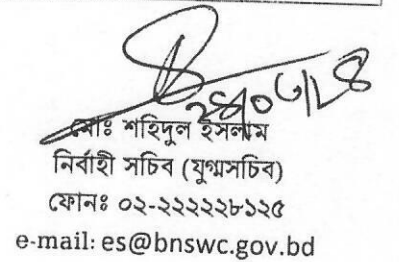 মোঃ শহিদুল ইসলাম
নির্বাহী সচিব (যুগ্মসচিব)
ফোনঃ ০২-২২২২২৮১২৫
e-mail: es@bnswc.gov.bd